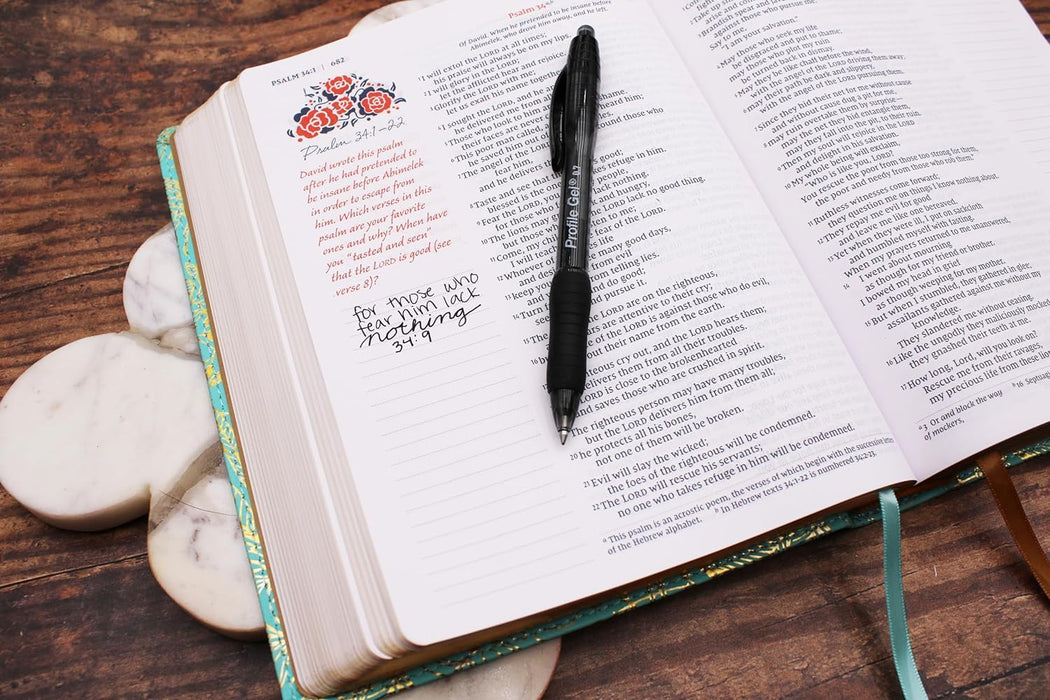 PSALM 34:1 | 682
Psalm 34:1–22
David wrote this psalm
after he had pretended to
be insane before Abimelek
in order to escape from
him. Which verses in this
psalm are your favorite
ones and why? When have
you "tasted and seen"
that the LORD is good (see
verse 8)?
for those who
fear him lack
nothing
34:9
Psalm 34
Of David. When he pretended to be insane before
Abimelek, who drove him away, and he left.
1 I will extol the LORD at all times;
his praise will always be on my lips.
2 I will glory in the LORD;
let the afflicted hear and rejoice.
3 Glorify the LORD with me;
let us exalt his name together.
4 I sought the LORD, and he
he delivered me from
5 Those who look to him are
their faces are never
6 This poor man called, and heard him;
he saved him out of
7 The angel of the LORD around those who
fear him,
and he delivers them.
8 Taste and see that good;
blessed is the one refuge in him.
9 Fear the LORD, you people,
for those who lack nothing.
10 The lions may and hungry,
but those who LORD lack no good thing.
11 Come, my children, listen to me;
I will teach fear of the LORD.
12 Whoever of you
and desires many good days,
13 keep your
and from telling lies.
14 Turn from evil
and pursue it.
15 The LORD are on the righteous,
ears are attentive to their cry;
16 the LORD is against those who do evil,
out their name from the earth.
17 cry out, and the LORD hears them;
delivers them from all their troubles.
LORD is close to the brokenhearted
and saves those who are crushed in spirit.
The righteous person may have many troubles,
but the LORD delivers him from them all;
20 he protects all his bones,
not one of them will be broken.
21 Evil will slay the wicked;
the foes of the righteous will be condemned.
22 The LORD will rescue his servants;
no one who takes refuge in him will be condemned.
a This psalm is an acrostic poem, the verses of which begin with the successive letters
of the Hebrew alphabet. b In Hebrew texts 34:1-22 is numbered 34:2-23.
Profile Gel 0.7
against those who pursue me.
Say to me,
"I am your salvation."
4 May those who seek my life
be disgraced and put to shame;
may those who plot my ruin
be turned back in dismay.
5 May they be like chaff before the wind,
with the angel of the LORD driving them away;
6 may their path be dark and slippery,
with the angel of the LORD pursuing them.
7 Since they hid their net for me without cause
and without cause dug a pit for me,
8 may ruin overtake them by surprise—
may the net they hid entangle them,
may they fall into the pit, to their ruin.
9 Then my soul will rejoice in the LORD
and delight in his salvation.
10 My whole being will exclaim,
"Who is like you, LORD?
You rescue the poor from those too strong for them,
the poor and needy from those who rob them."
11 Ruthless witnesses come forward;
they question me on things I know nothing about.
12 They repay me evil for good
and leave me like one bereaved.
13 Yet when they were ill, I put on sackcloth
and humbled myself with fasting.
When my prayers returned to me unanswered,
14 I went about mourning
as though for my friend or brother.
I bowed my head in grief
as though weeping for my mother.
15 But when I stumbled, they gathered in glee;
assailants gathered against me without my
knowledge.
They slandered me without ceasing.
16 Like the ungodly they maliciously mocked
they gnashed their teeth at me.
17 How long, Lord, will you look on?
Rescue me from their ravages,
my precious life from these lions
a 3 Or and block the way b 16 Septuag
of mockers,